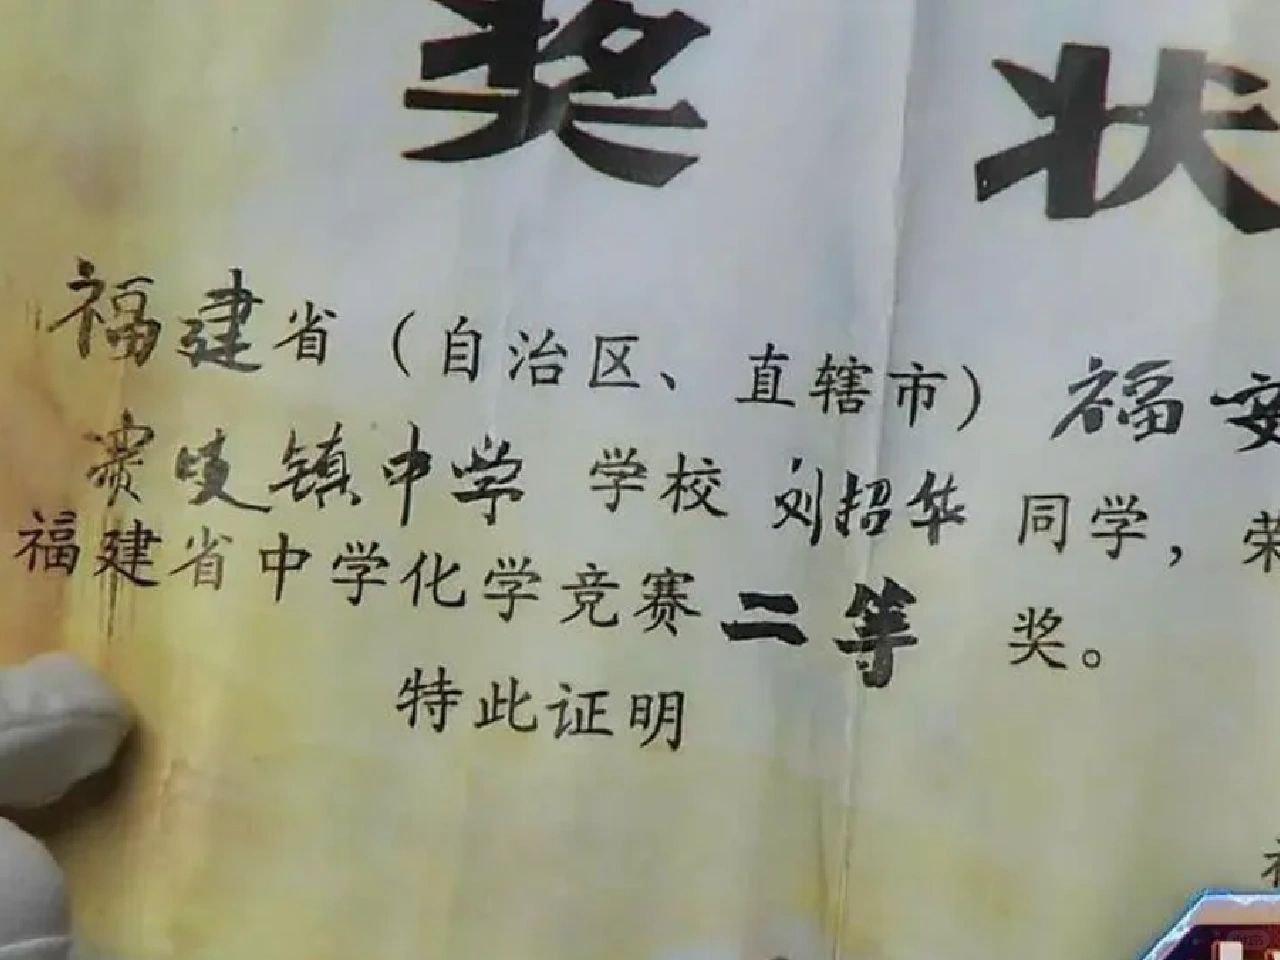 奖 状
福建省（自治区、直辖市）福安
赛岐镇中学 学校 刘招华 同学，荣
福建省中学化学竞赛二等 奖。
特此证明